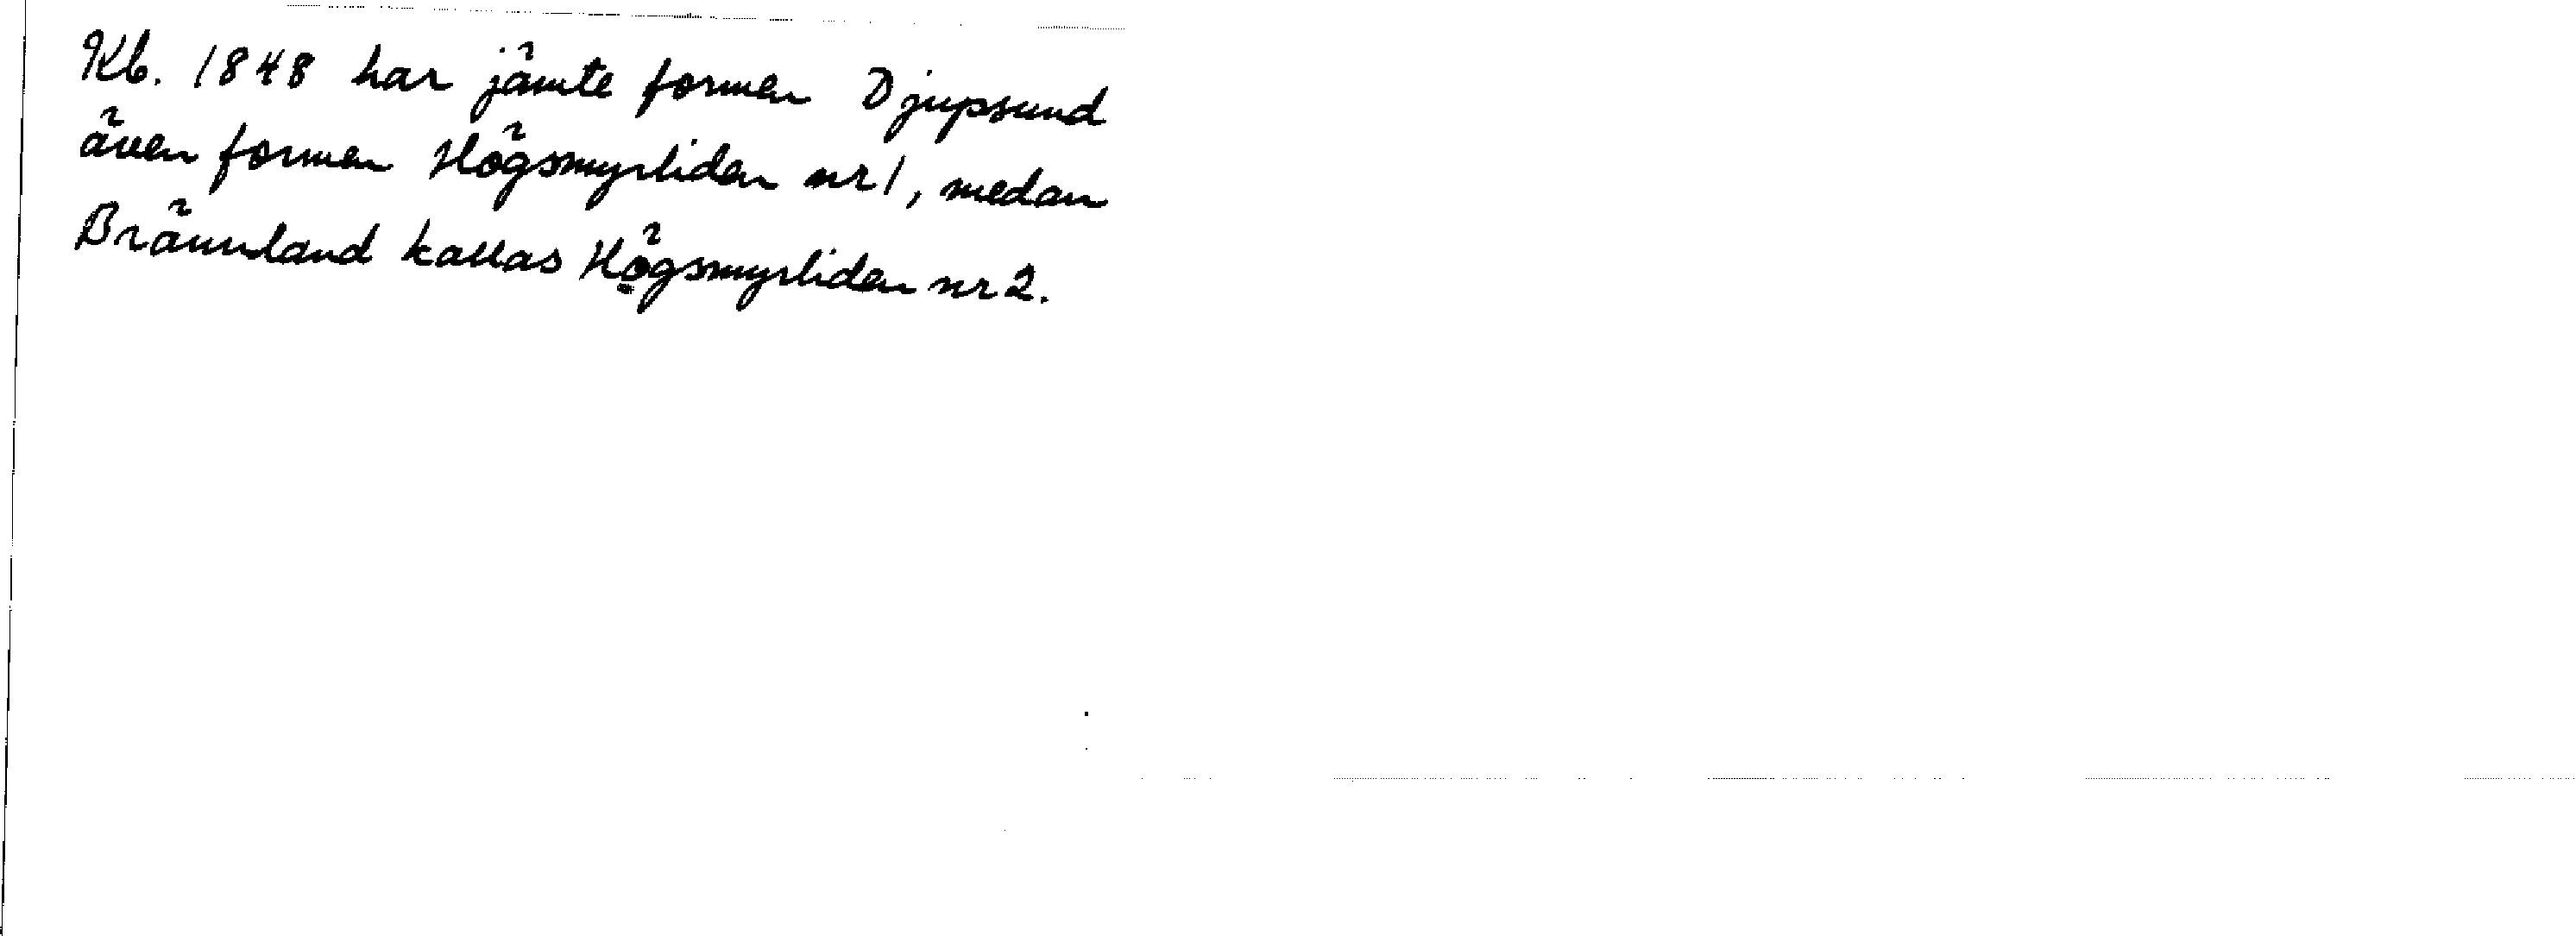 Kb. 1848 har jämte formen Djupsund
även formen Högsmyrliden nr 1, medan
Brännland kallas Högsmyrliden nr 2.